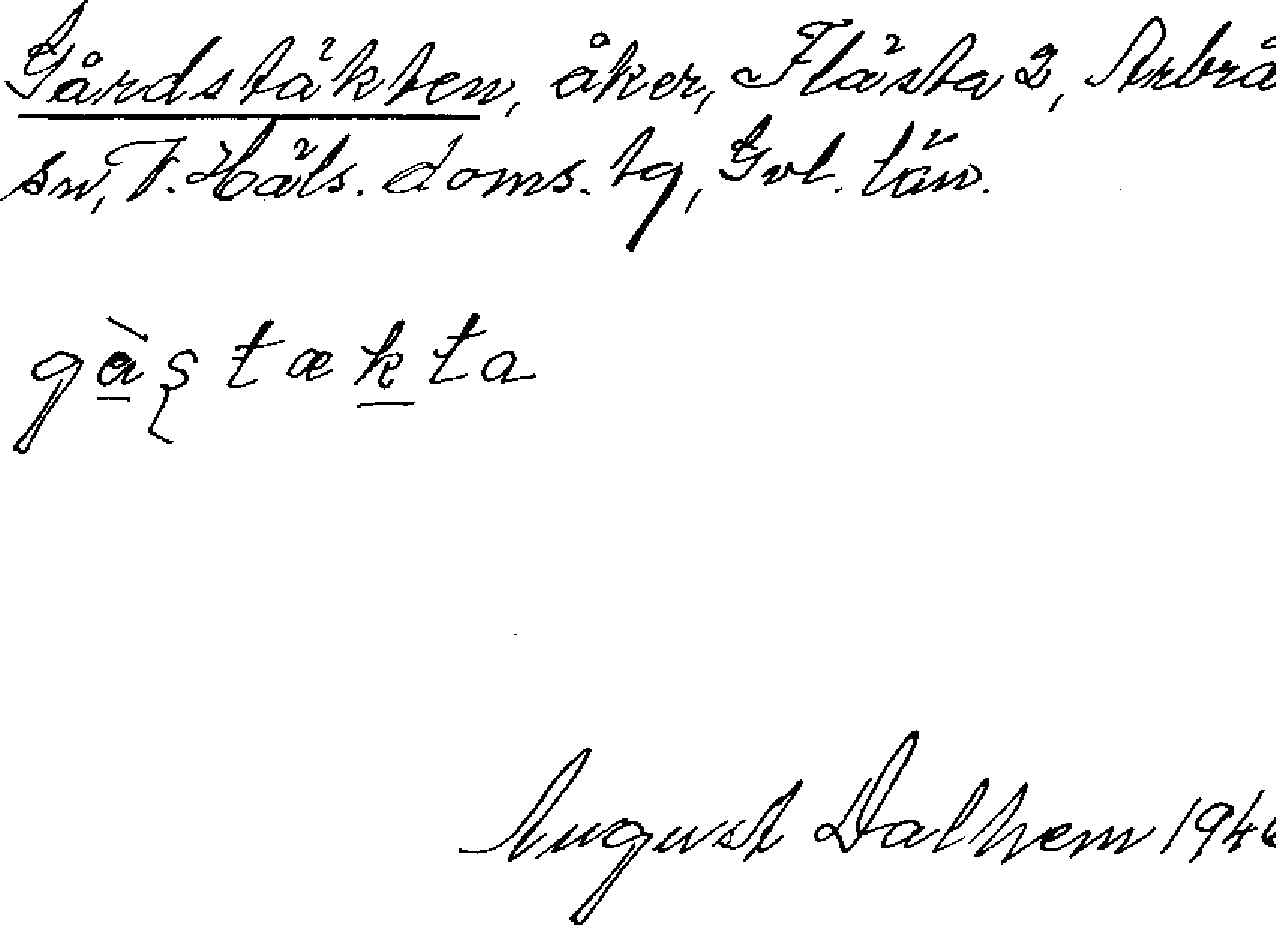 Gårdstäkten, åker, Flästa 2, Arbrå
sn, V. Häls. doms. tg, Gvl. län.
gàștækta
August Dalhem 194